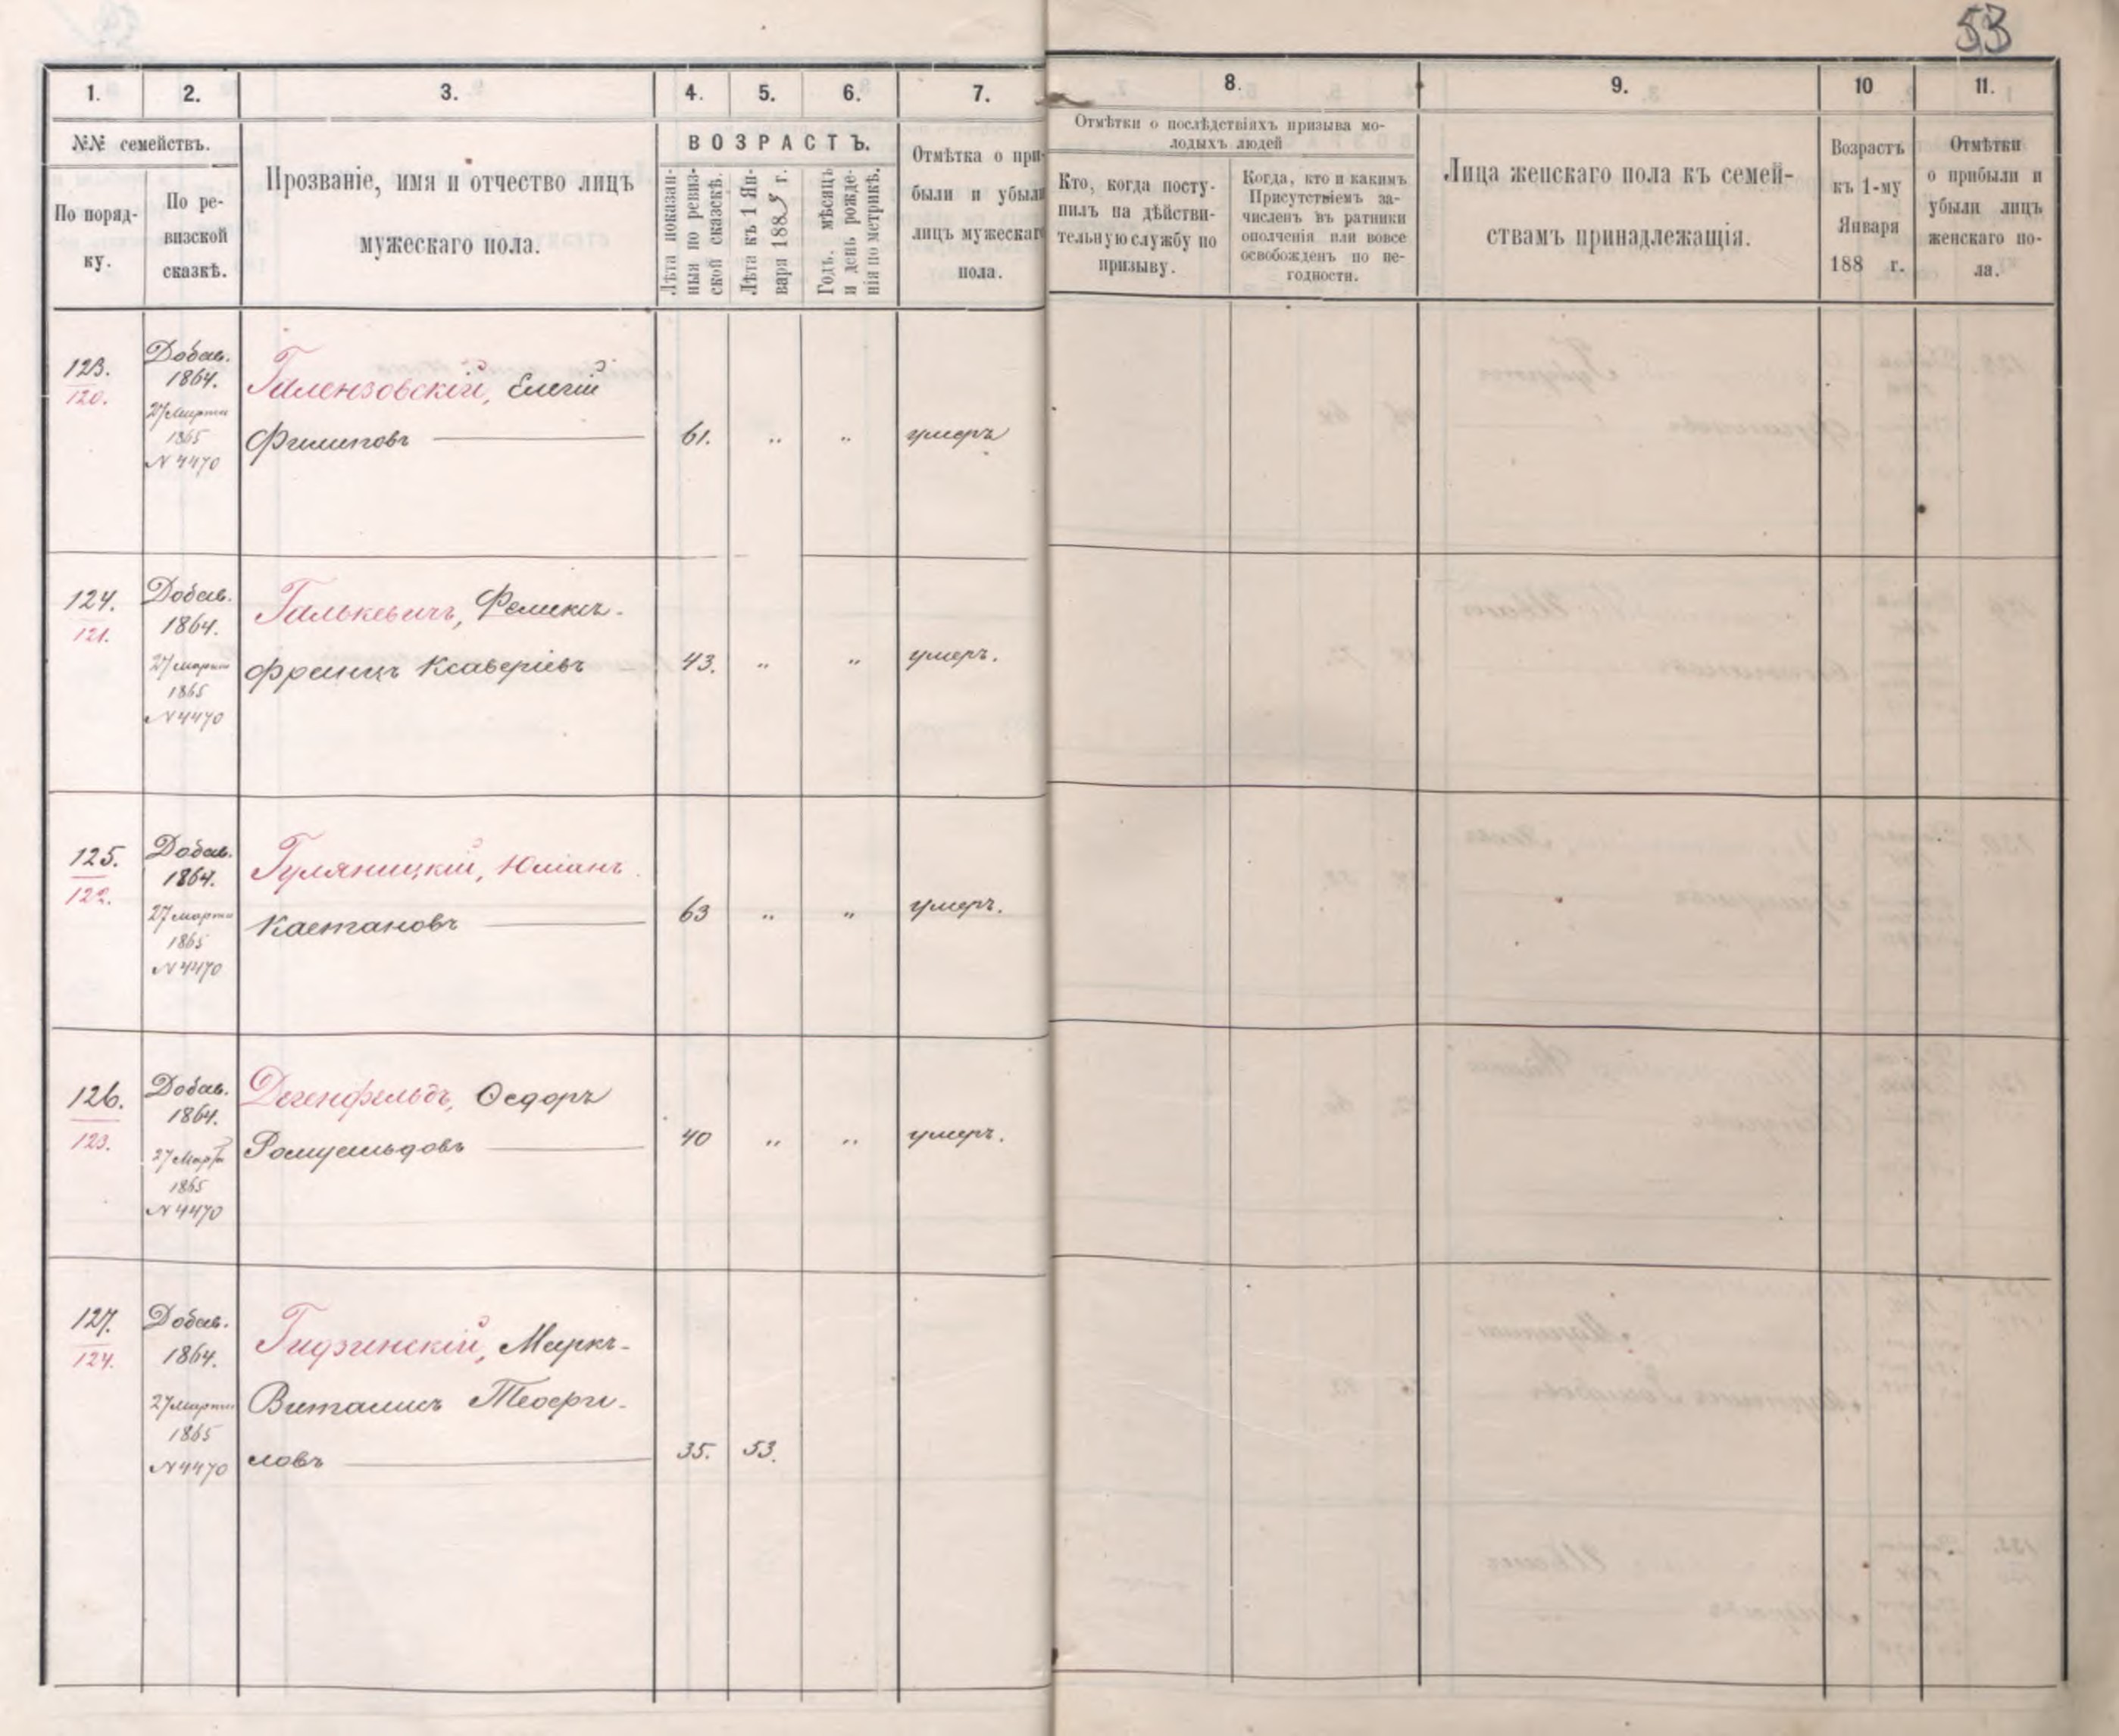 53
1.
2.
3.
4.
5.
6.
7.
8.
9.
10
11.
№№ семействъ.
По поряд-
ку.
По ре-
визской
сказкѣ.
Прозваніе, имя и отчество лицъ
мужескаго пола.
ВОЗРАСТЪ.
Лѣта показан-
ныя по ревиз-
ской сказкѣ.
Лѣта къ 1 Ян-
варя 1883 г.
Годъ, мѣсяцъ
и день рожде-
нія по метрикѣ.
Отмѣтка о при-
были и убыли
лицъ мужескаго
пола.
Отмѣтки о послѣдствіяхъ призыва мо-
лодыхъ людей
Кто, когда посту-
пилъ на дѣйстви-
тельную службу по
призыву.
Когда, кто и какимъ
Присутствіемъ за-
численъ въ ратники
ополченія или вовсе
освобожденъ по не-
годности.
Лица женскаго пола къ семей-
ствамъ принадлежащія.
Возрастъ
къ 1-му
Января
188 г.
Отмѣтки
о прибыли и
убыли лицъ
женскаго по-
ла.
123.
120.
Добав.
1864.
27 Марта
1865
N 4470
Галензовскій, Елегій
Филиповъ
61.
"
"
умеръ
124.
121.
Добав.
1864.
27 марта
1865
N 4470
Галькевичъ, Феликсъ-
Францъ Ксаверіевъ
43.
"
"
умеръ.
125.
122.
Добав.
1864.
27 марта
1865
N 4470
Гуляницкій, Юліанъ
Каетановъ
63
"
"
умеръ.
126.
123.
Добав.
1864.
27 Марта
1865
N 4470
Дегенфельдъ, Ѳедоръ
Ромуальдовъ
40
"
"
умеръ.
127.
124.
Добав.
1864.
27 марта
1865
N 4470
Гидзинскій, Маркъ-
Виталисъ Теофи-
ловъ
35.
53.